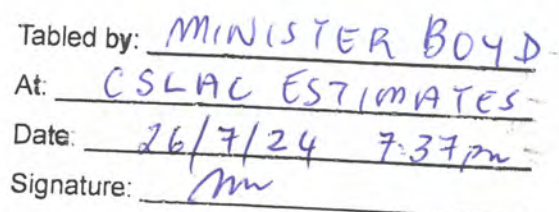 Tabled by: MINISTER BOYD
At: CSLAC ESTIMATES
Date: 26/7/24 7:37pm
Signature: